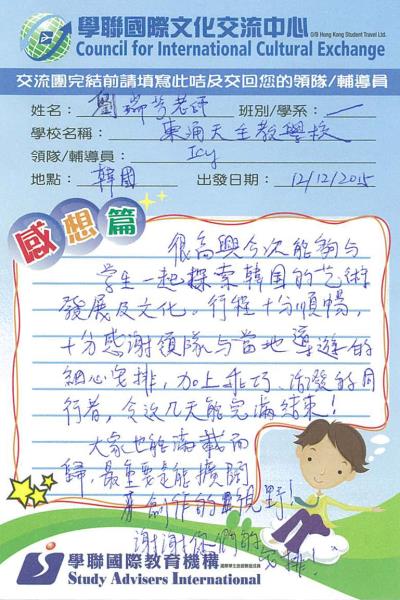 學聯國際文化交流中心 O/B Hong Kong Student Travel Ltd.
Council for International Cultural Exchange
交流團完結前請填寫此咭及交回您的領隊/輔導員
姓名：劉瑞芳老師 班別/學系：一
學校名稱：東涌天主教學校
領隊/輔導員：Icy
地點：韓國 出發日期：12/12/2015
感想篇
很高興今次能夠与
学生一起探索韓国的艺術
發展及文化。行程十分順暢，
十分感謝領隊与當地導遊的
細心安排，加上乖巧、活潑的同
行者，令這几天能完滿結束！
大家也能滿載而
歸，最重要是能擴闊
創作的視野！
謝謝你們的安排！
學聯國際教育機構
Study Advisers International